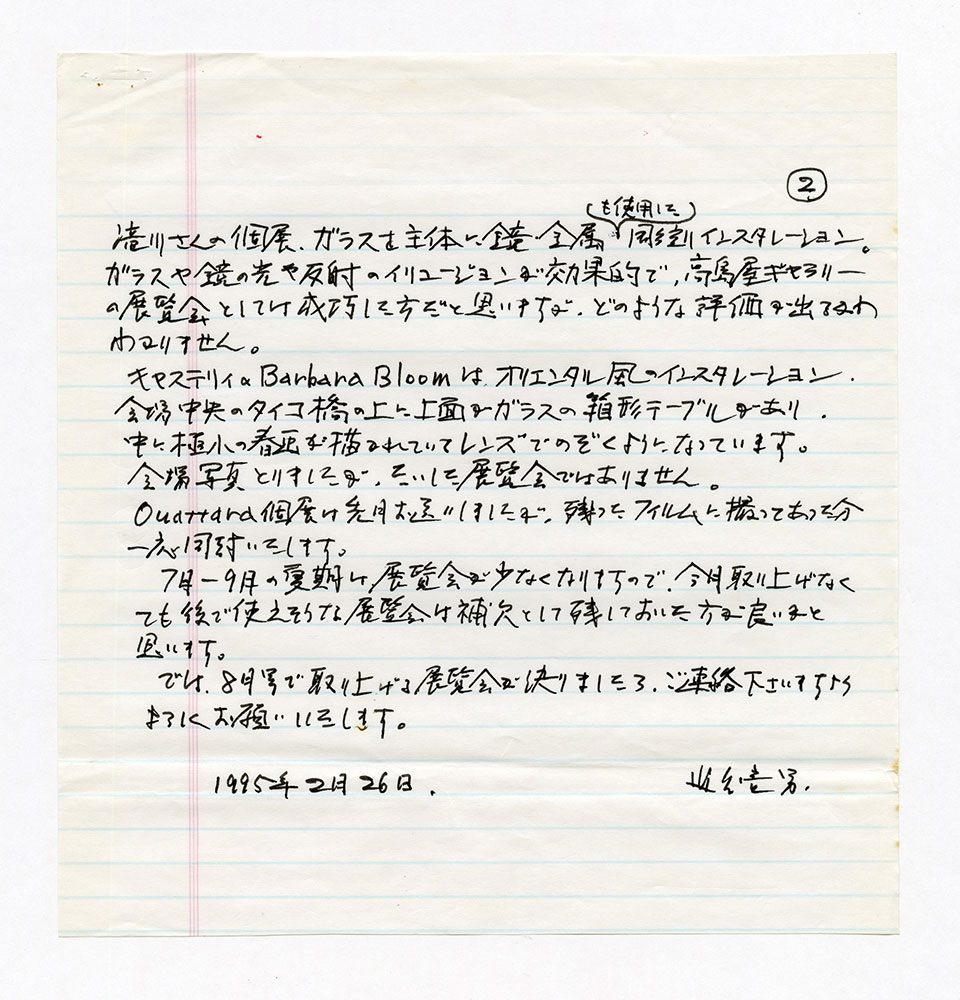 ②
も使用した
清川さんの個展、ガラスを主体に鏡・金属 間仕切りインスタレーション。
ガラスや鏡の光や反射のイリュージョンが効果的で、高島屋ギャラリー
の展覧会としては成功した方だと思いますが、どのような評価が出るかわ
わかりません。
キャステリィのBarbara Bloomは、オリエンタル風のインスタレーション。
会場中央のタイコ橋の上に上面がガラスの箱形テーブルがあり、
中に極小の春画が描かれていてレンズでのぞくようになっています。
会場写真とりましたが、たいした展覧会ではありません。
Ouattara個展は先月お送りしましたが、残ったフィルムに撮ってあった分
一応同封いたします。
7月−9月の夏期は、展覧会が少なくなりますので、今月取り上げなく
ても後で使えそうな展覧会は補欠として残しておいた方が良いかと
思います。
では、8月号で取り上げる展覧会が決りましたら、ご連絡下さいますよう
よろしくお願いいたします。
1995年2月26日.